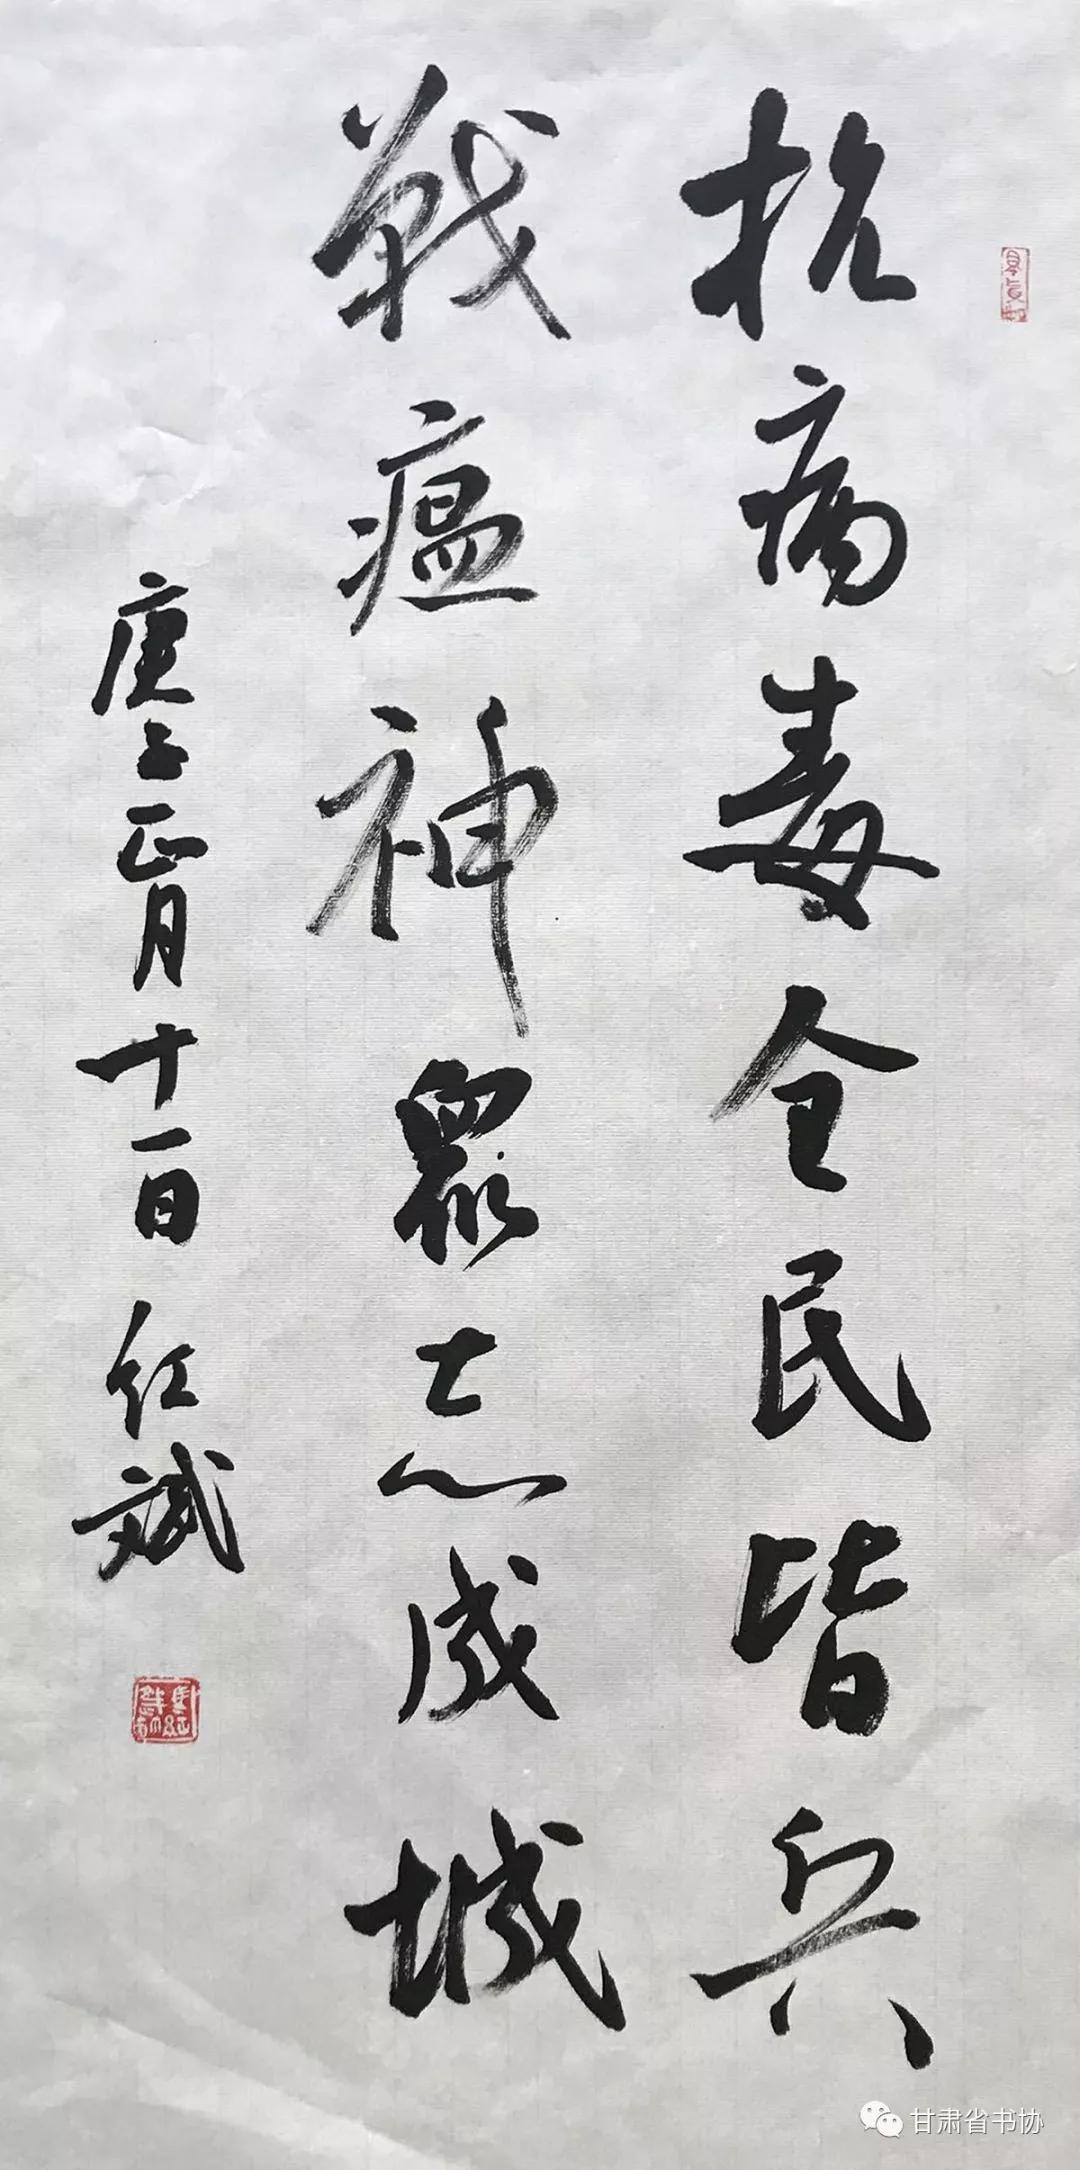 抗病毒全民皆兵
戰瘟神眾志成城
庚子正月十一日红斌
甘肃省书协